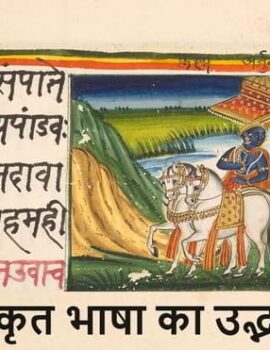 संपाते
यपांडवः
तदावा
हमही
नउवाच
कृत भाषा का उद्भ